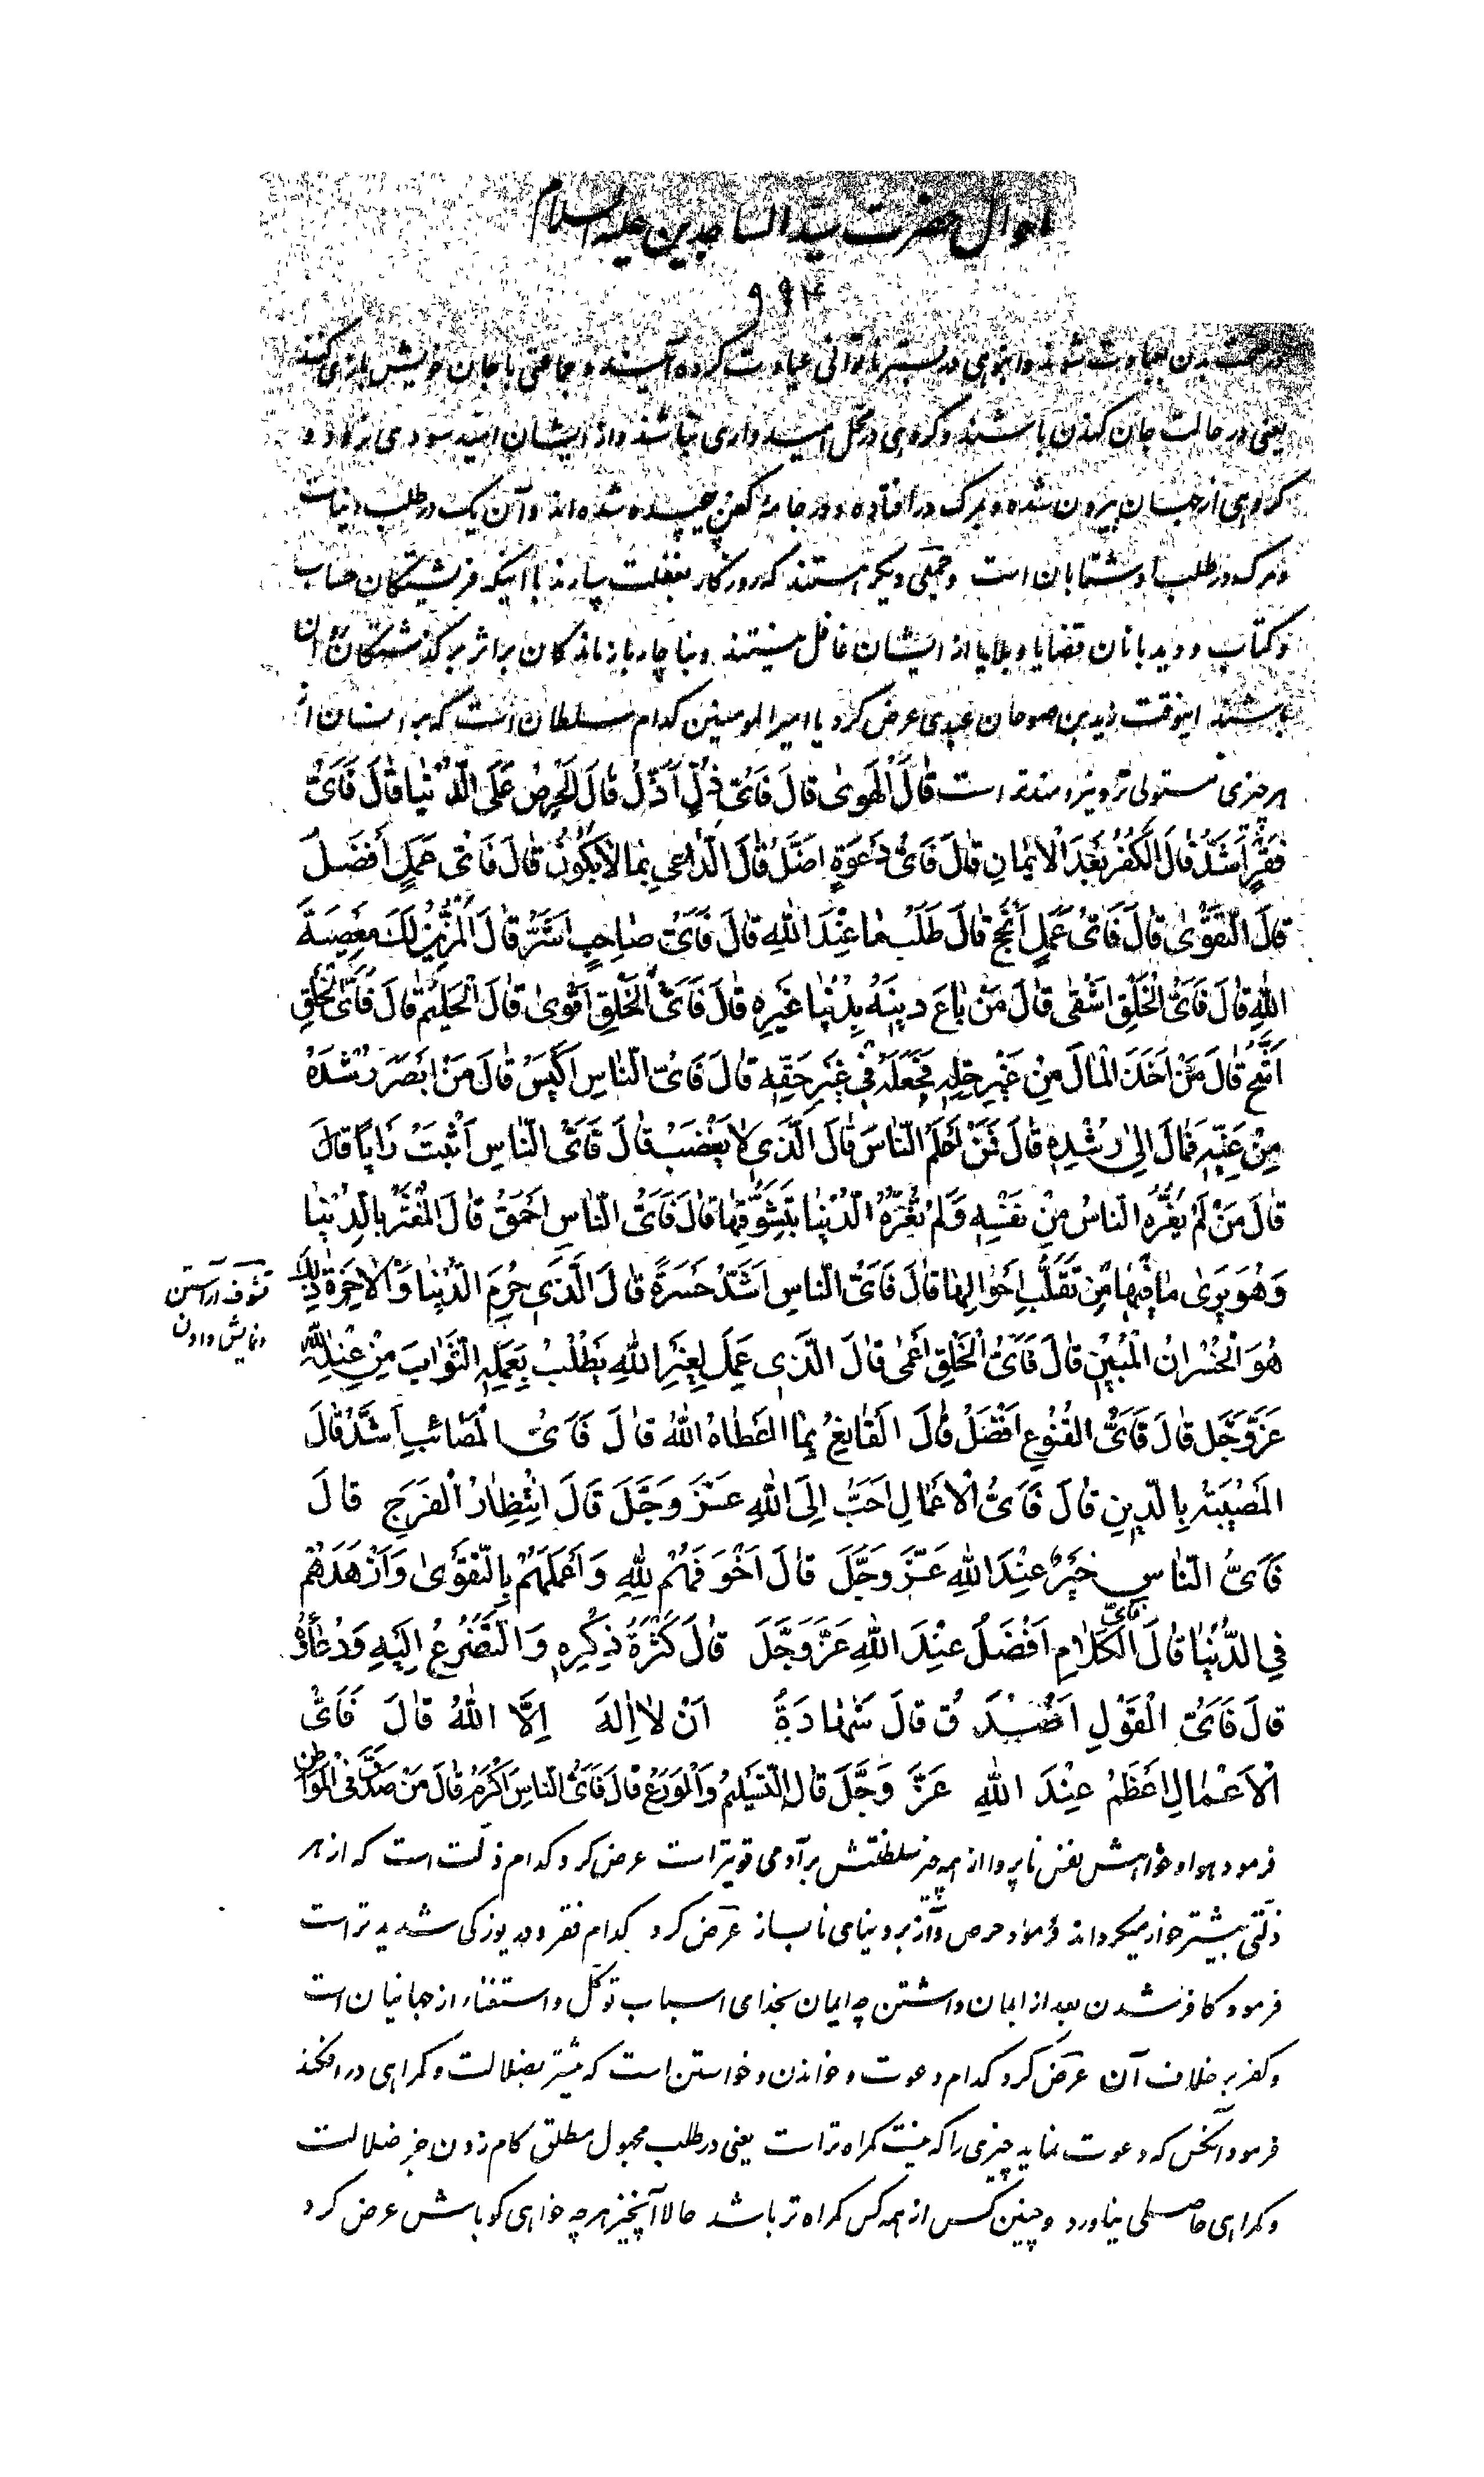 احوال حضرت سید الساجدین علیه السلام
۹۹۴
بدن بعبادت شوند و انبوهی در بستر ناتوانی عیادت کرده آیند و جماعتی با جان خویش بازی کنند
یعنی در حالت جان کندن باشند و گروهی در محل امیدواری نباشند و از ایشان امید سودی نرود و
گروهی از جهان بیرون شده و بمرک در افتاده و در جامهٔ کفن پیچیده شده‌اند و آن یک در طلب دنیاست
و مرک در طلب او شتابان است و جمعی دیگر هستند که روزگار بغفلت سپارند با اینکه فریشتگان حساب
و کتاب و دیدبانان قضایا و بلایا از ایشان غافل نیستند و بناچار بازماندکان بر اثر برگذشتگان روان
باشند اینوقت زید بن صوحان عبدی عرض کرد یا امیر المومنین کدام سلطان است که بر انسان از
هر چیزی مستولی‌تر و نیرومندتر است قَالَ الْهَوىٰ قَالَ فَاَیُّ ذُلٍّ اَذَلُّ قَالَ الْحِرْصُ عَلَی الدُّنْیٰا قَالَ فَاَیُّ
فَقْرٍ اَشَدُّ قَالَ الْکُفْرُ بَعْدَ الْاٖیمٰانِ قٰالَ فَاَیُّ دَعْوَةٍ اَضَلُّ قٰالَ الدّٰاعٖی بِمٰا لٰا یَکُونُ قٰالَ فَاَیُّ عَمَلٍ أَفْضَلُ
قٰالَ التَّقْوٰی قٰالَ فَاَیُّ عَمَلٍ اَنْجَحُ قٰالَ طَلَبُ مٰا عِنْدَ اللهِ قٰالَ فَاَیُّ صٰاحِبٍ اَشَرُّ قٰالَ الْمُزَیِّنُ لَکَ مَعْصِیَةَ
اللهِ قٰالَ فَاَیُّ الْخَلْقِ اَشْقٰی قٰالَ مَنْ بٰاعَ دٖینَهُ بِدُنْیٰا غَیْرِهِ قٰالَ فَاَیُّ الْخَلْقِ اَقْوٰی قٰالَ الْحَلٖیمُ قٰالَ فَاَیُّ الْخَلْقِ
اَشَحُّ قٰالَ مَنْ اَخَذَ الْمٰالَ مِنْ غَیْرِ حِلِّهِ فَجَعَلَهُ فٖی غَیْرِ حَقِّهِ قٰالَ فَاَیُّ النّٰاسِ اَکْیَسُ قٰالَ مَنْ اَبْصَرَ رُشْدَهُ
مِنْ غَیِّهِ فَمٰالَ اِلٰی رُشْدِهِ قٰالَ فَمَنْ اَحْلَمُ النّٰاسِ قٰالَ الَّذٖی لٰا یَغْضَبُ قٰالَ فَاَیُّ النّٰاسِ اَثْبَتُ رَاْیاً قٰالَ
قٰالَ مَنْ لَمْ یَغُرَّهُ النّٰاسُ مِنْ نَفْسِهِ وَلَمْ تَغُرَّهُ الدُّنْیٰا بِتَشَوُّفِهٰا قٰالَ فَاَیُّ النّٰاسِ اَحْمَقُ قٰالَ الْمُغْتَرُّ بِالدُّنْیٰا
وَهُوَ یَرٰی مٰا فٖیهٰا مِنْ تَقَلُّبِ اَحْوٰالِهٰا قٰالَ فَاَیُّ النّٰاسِ اَشَدُّ حَسْرَةً قٰالَ الَّذٖی حُرِمَ الدُّنْیٰا وَالْاٰخِرَةَ ذٰلِکَ
تشوف آراستن
و نمایش دادن
هُوَ الْخُسْرٰانُ الْمُبٖینُ قٰالَ فَاَیُّ الْخَلْقِ اَعْمٰی قٰالَ الَّذٖی عَمِلَ لِغَیْرِ اللهِ یَطْلُبُ بِعَمَلِهِ الثَّوٰابَ مِنْ عِنْدِ اللّٰهِ
عَزَّ وَجَلَّ قٰالَ فَاَیُّ الْقُنُوعِ اَفْضَلُ قٰالَ الْقٰانِعُ بِمٰا اَعْطٰاهُ اللهُ قٰالَ فَاَیُّ الْمَصٰائِبِ اَشَدُّ قٰالَ
الْمُصٖیبَةُ بِالدّٖینِ قٰالَ فَاَیُّ الْاَعْمٰالِ اَحَبُّ اِلَی اللهِ عَزَّ وَجَلَّ قَالَ انْتِظٰارُ الْفَرَجِ قٰالَ
فَاَیُّ النّٰاسِ خَیْرٌ عِنْدَ اللهِ عَزَّ وَجَلَّ قٰالَ اَخْوَفُهُمْ لِلّٰهِ وَ اَعْمَلُهُمْ بِالتَّقْوٰی وَ اَزْهَدُهُمْ
فِی الدُّنْیٰا قٰالَ فَاَیُّ الْکَلٰامِ اَفْضَلُ عِنْدَ اللهِ عَزَّ وَجَلَّ قٰالَ کَثْرَةُ ذِکْرِهِ وَ التَّضَرُّعُ اِلَیْهِ وَدُعٰاؤُهُ
قٰالَ فَاَیُّ الْقَوْلِ اَصْدَقُ قٰالَ شَهٰادَةُ اَنْ لٰا اِلٰهَ اِلَّا اللهُ قٰالَ فَاَیُّ
الْاَعْمٰالِ اَعْظَمُ عِنْدَ اللهِ عَزَّ وَجَلَّ قٰالَ التَّسْلٖیمُ وَالْوَرَعُ قٰالَ فَاَیُّ النّٰاسِ اَکْرَمُ قٰالَ مَنْ صَدَقَ فِی الْمَوٰاطِنِ
فرمود هوا و خواهش نفس ناپروا از همه چیز سلطنتش بر آدمی قویتر است عرض کرد کدام ذلت است که از هر
ذلتی بیشتر خوار میگرداند فرمود حرص و آز بر دنیای ناساز عرض کرد کدام فقر و دریوزگی شدیدتر است
فرمود کافر شدن بعد از ایمان داشتن چه ایمان بخدای اسباب توکل و استغناء از جهانیان است
و کفر برخلاف آن عرض کرد کدام دعوت و خواندن و خواستن است که بیشتر بضلالت و گمراهی در افکند
فرمود آنکس که دعوت نماید چیزی را که نیست گمراه‌تر است یعنی در طلب مجهول مطلق گام زدن جز ضلالت
و گمراهی حاصلی نیاورد و چنین کس از همه کس گمراه‌تر باشد حالا آنچیز هر چه خواهی گو باش عرض کرد